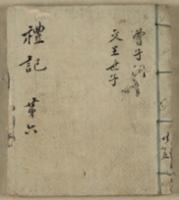 曾子問
文王世子
禮記 第六